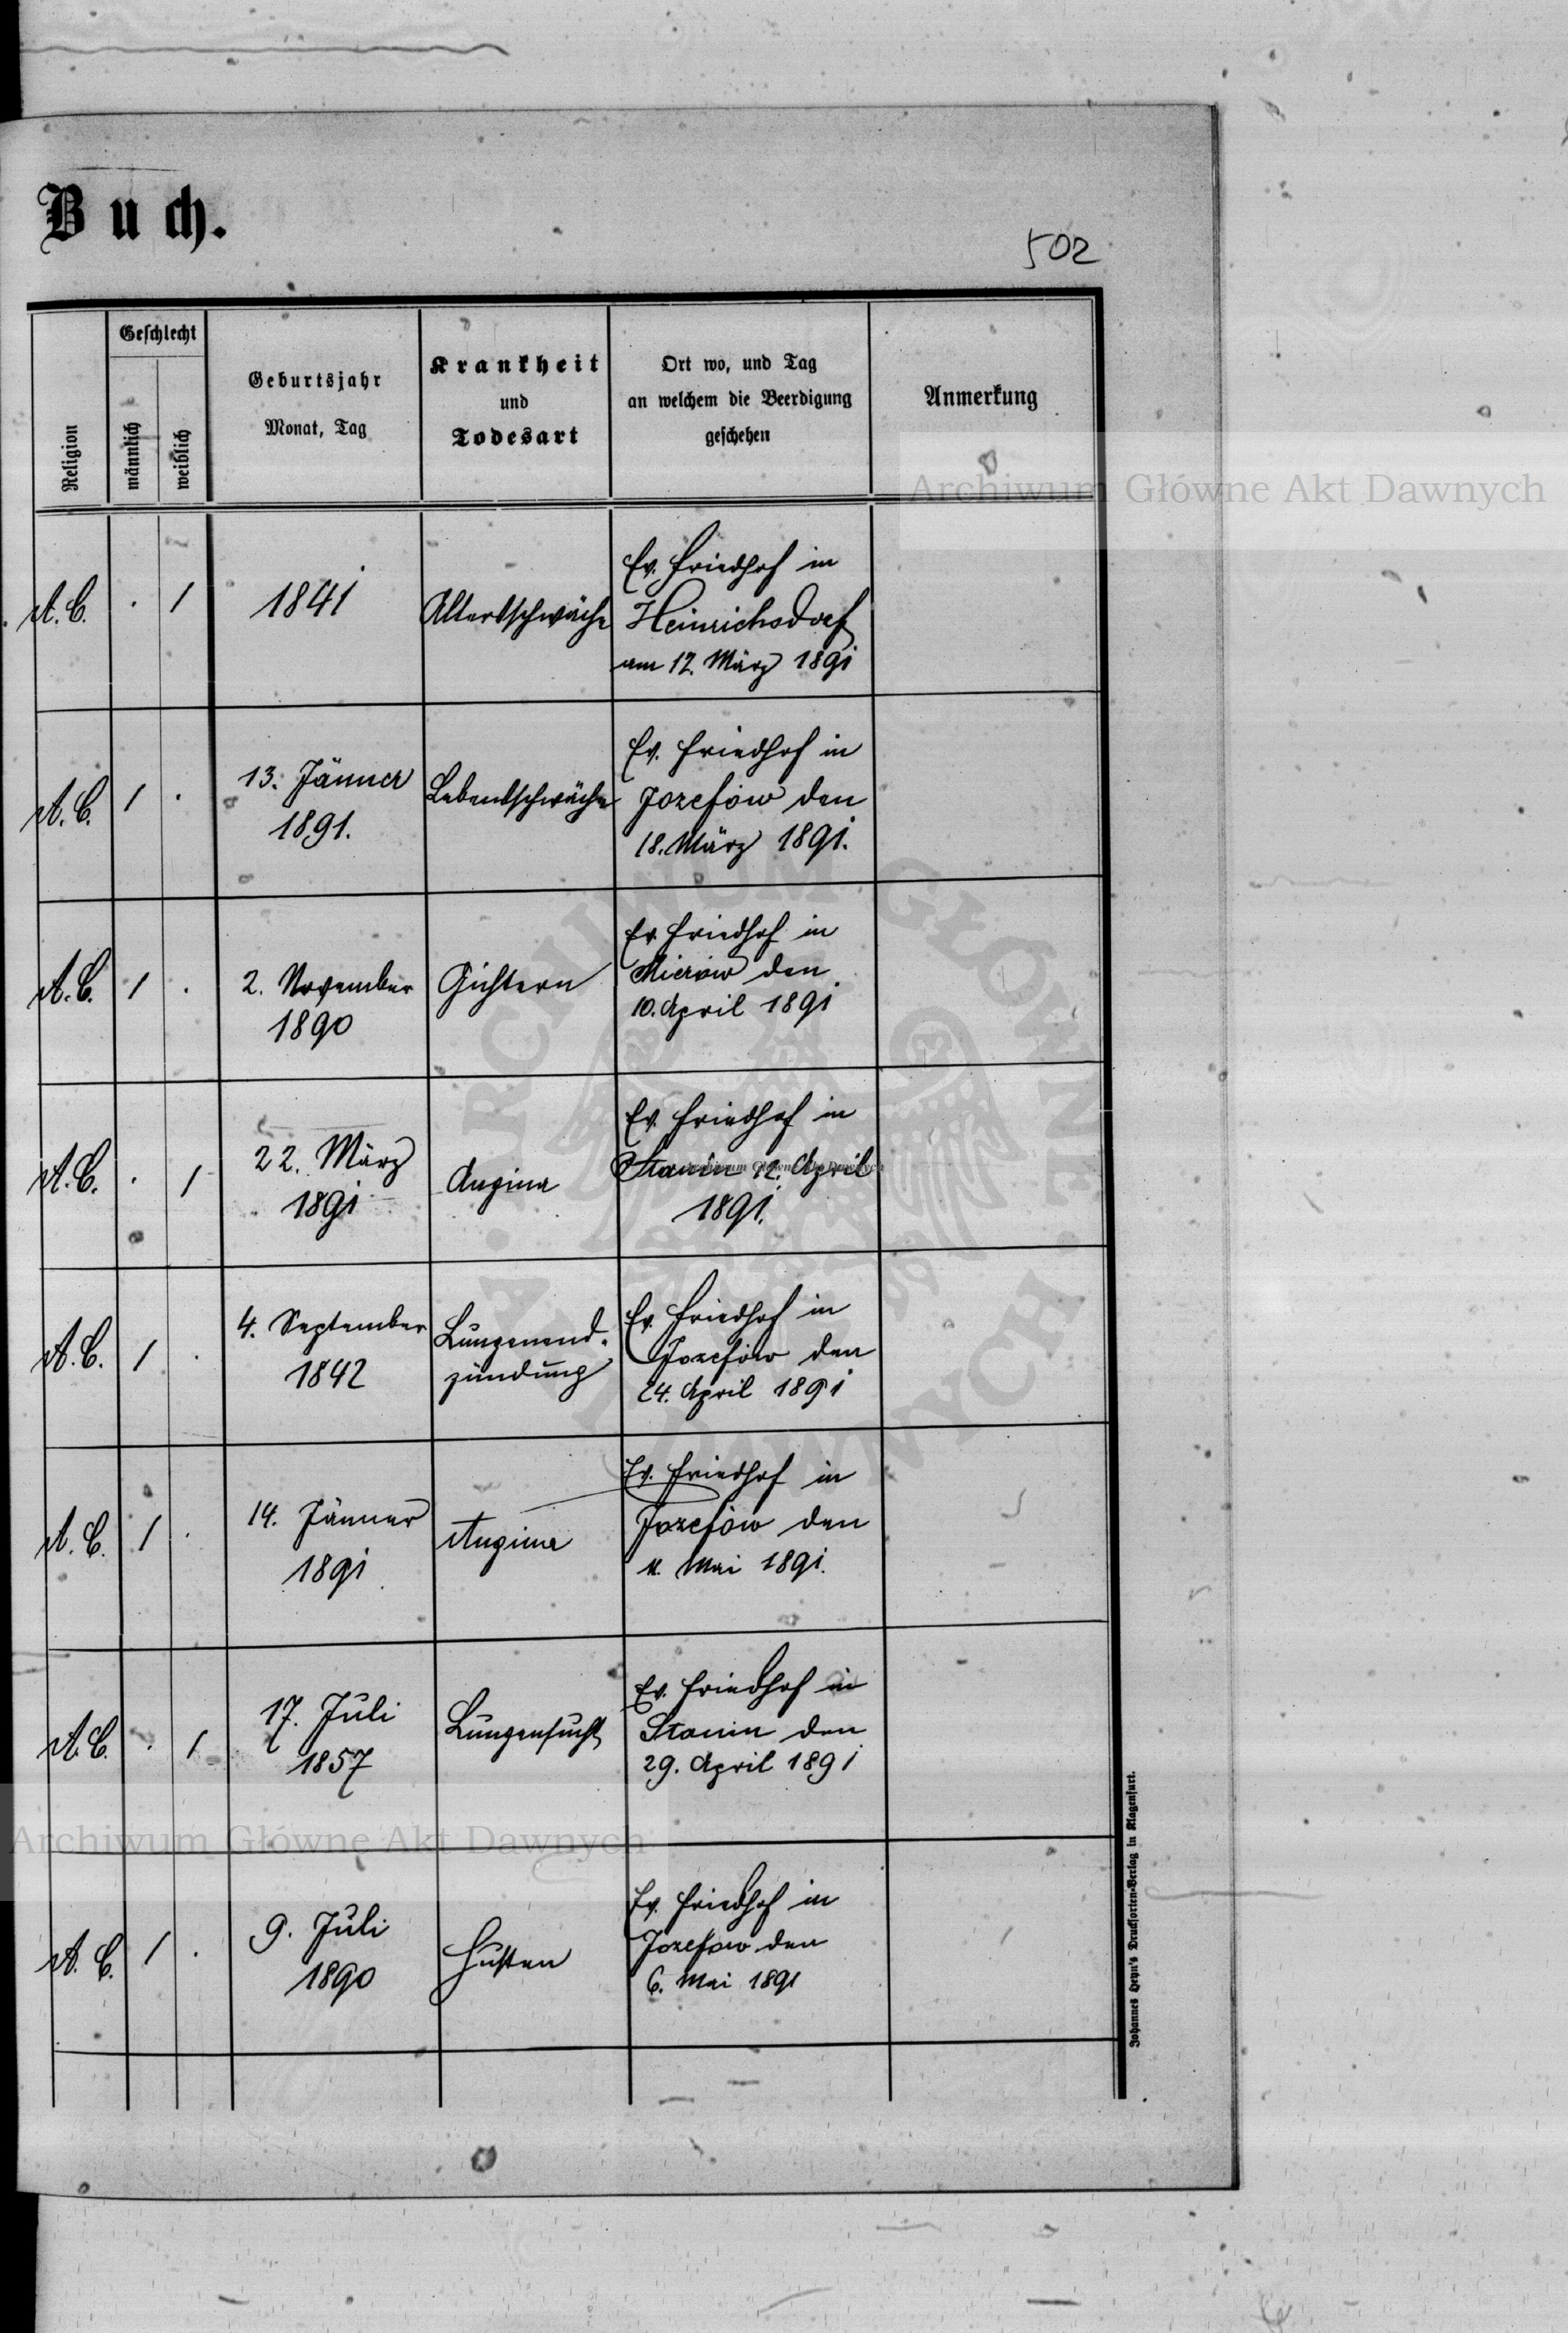 Buch.
502
Religion
Geschlecht
männlich
weiblich
Geburtsjahr
Monat, Tag
Krankheit
und
Todesart
Ort wo, und Tag
an welchem die Beerdigung
geschehen
Anmerkung
A. C. . / 1841 Altersschwäche
Ev. Friedhof in
Heinrichsdorf
am 12. März 1891
A. C. / .
13. Jänner
1891.
Lebensschwäche
Ev. Friedhof in
Jozefów den
18. März 1891.
A. C. / .
2. November
1890
Gichtern
Ev. Friedhof in
Mierów den
10. April 1891
A. C. . /
22. März
1891
Angina
Ev. Friedhof in
Stanin 12. April
1891.
A. C. / .
4. September
1842
Lungenend-
zündung
Ev. Friedhof in
Jozefów den
24. April 1891
A. C. / .
14. Jänner
1891
Angina
Ev. Friedhof in
Jozefów den
Mai 1891.
A. C. . /
17. Juli
1857
Lungensucht
Ev. Friedhof in
Stanin den
29. April 1891
A. C. / .
9. Juli
1890
Husten
Ev. Friedhof in
Jozefow den
6. Mai 1891
Johannes Heyn's Drucksorten-Verlag in Klagenfurt.
Archiwum Główne Akt Dawnych
Archiwum Główne Akt Dawnych
Archiwum Główne Akt Dawnych
ARCHIWUM GŁÓWNE AKT DAWNYCH